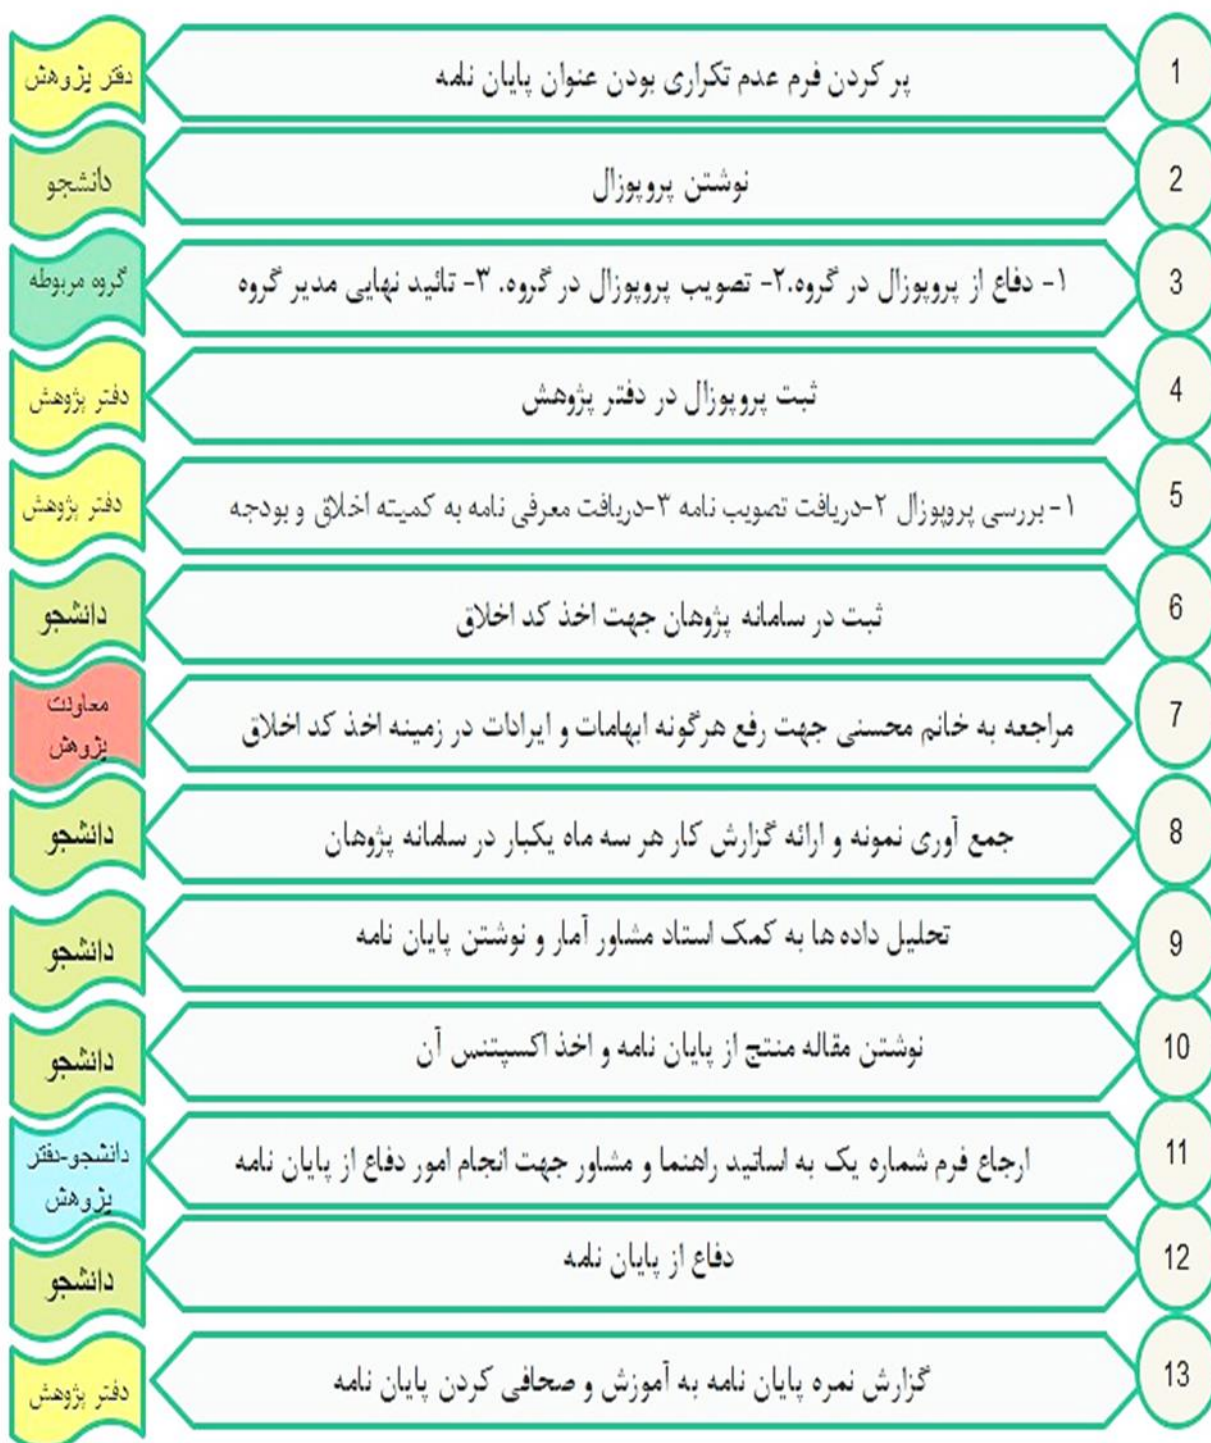 1
پر کردن فرم عدم تکراری بودن عنوان پایان نامه
دفتر پژوهش
2
نوشتن پروپوزال
دانشجو
3
۱- دفاع از پروپوزال در گروه.۲- تصویب پروپوزال در گروه. ۳- تائید نهایی مدیر گروه
گروه مربوطه
4
ثبت پروپوزال در دفتر پژوهش
دفتر پژوهش
5
۱- بررسی پروپوزال ۲-دریافت تصویب نامه ۳-دریافت معرفی نامه به کمیته اخلاق و بودجه
دفتر پژوهش
6
ثبت در سامانه پژوهان جهت اخذ کد اخلاق
دانشجو
7
مراجعه به خانم محسنی جهت رفع هرگونه ابهامات و ایرادات در زمینه اخذ کد اخلاق
معاونت
پژوهش
8
جمع آوری نمونه و ارائه گزارش کار هر سه ماه یکبار در سامانه پژوهان
دانشجو
9
تحلیل داده ها به کمک استاد مشاور آمار و نوشتن پایان نامه
دانشجو
10
نوشتن مقاله منتج از پایان نامه و اخذ اکسپتنس آن
دانشجو
11
ارجاع فرم شماره یک به اساتید راهنما و مشاور جهت انجام امور دفاع از پایان نامه
دانشجو-دفتر
پژوهش
12
دفاع از پایان نامه
دانشجو
13
گزارش نمره پایان نامه به آموزش و صحافی کردن پایان نامه
دفتر پژوهش